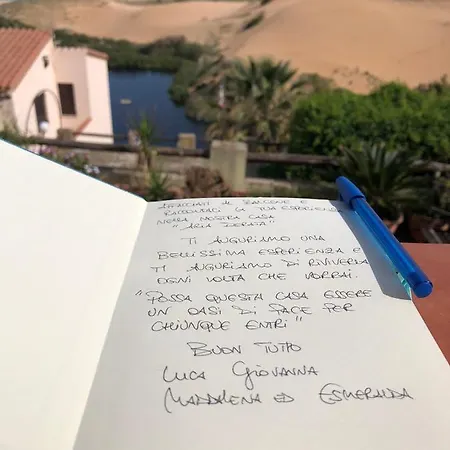 AFFACCIATI AL BALCONE E
RACCONTACI LA TUA ESPERIENZA
NELLA NOSTRA CASA
"ARIA DERATA"
TI AUGURIAMO UNA
BELLISSIMA ESPERIENZA E
TI AUGURIAMO DI RIVIVERLA
OGNI VOLTA CHE VORRAI.
"POSSA QUESTA CASA ESSERE
UN OASI DI PACE PER
CHIUNQUE ENTRI"
BUON TUTTO
LUCA GIOVANNA
MADDALENA ED ESMERALDA